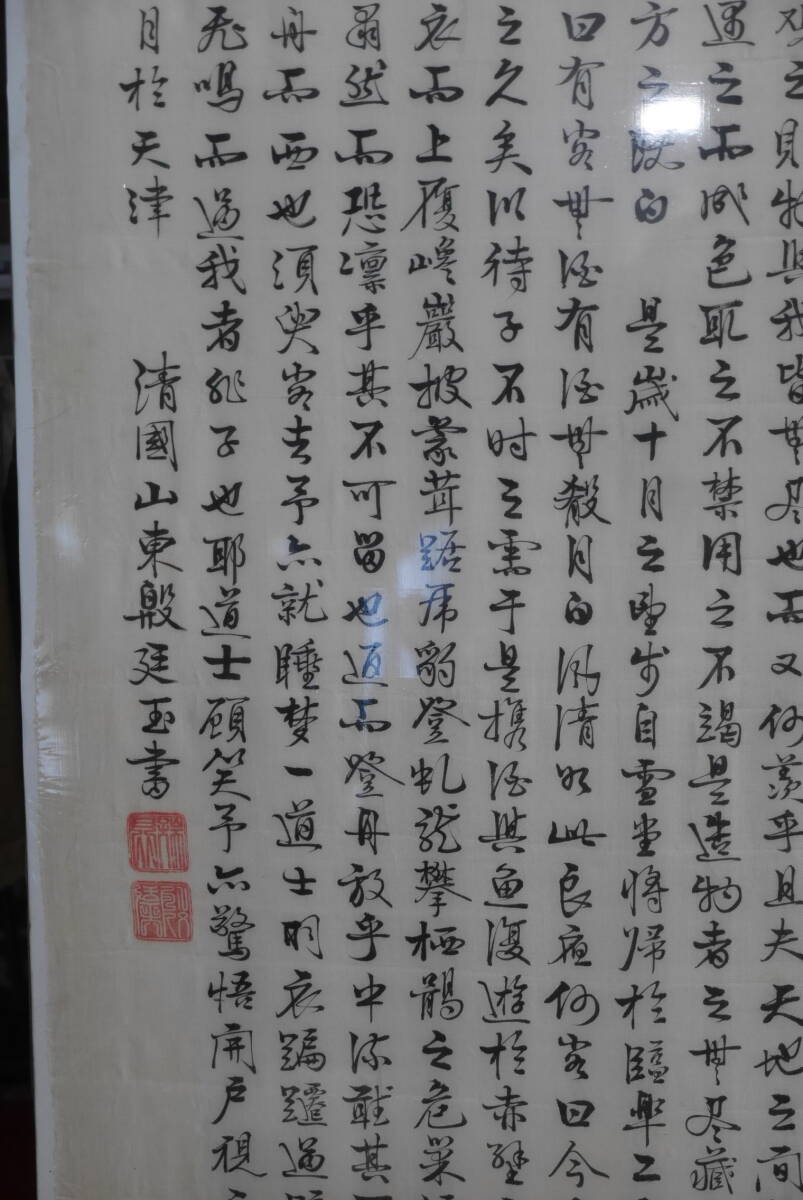 之則物與我皆無尽也而又何羨乎且夫天地之間
遇之而成色取之不禁用之不竭是造物者之無尽藏
方之既白　是歲十月之望步自雪堂將歸於臨皋二
曰有客無酒有酒無殽月白風清如此良夜何客曰今
之久矣以待子不時之需于是携酒與魚復遊於赤壁
衣而上履巉巖披蒙茸踞虎豹登虬龍攀栖鶻之危巢
肅然而恐凛乎其不可留也返而登舟放乎中流聽其
舟而西也須臾客去予亦就睡梦一道士羽衣蹁躚過
飛鳴而過我者非子也耶道士顧笑予亦驚悟開戶視
月於天津　清國山東殷廷玉書